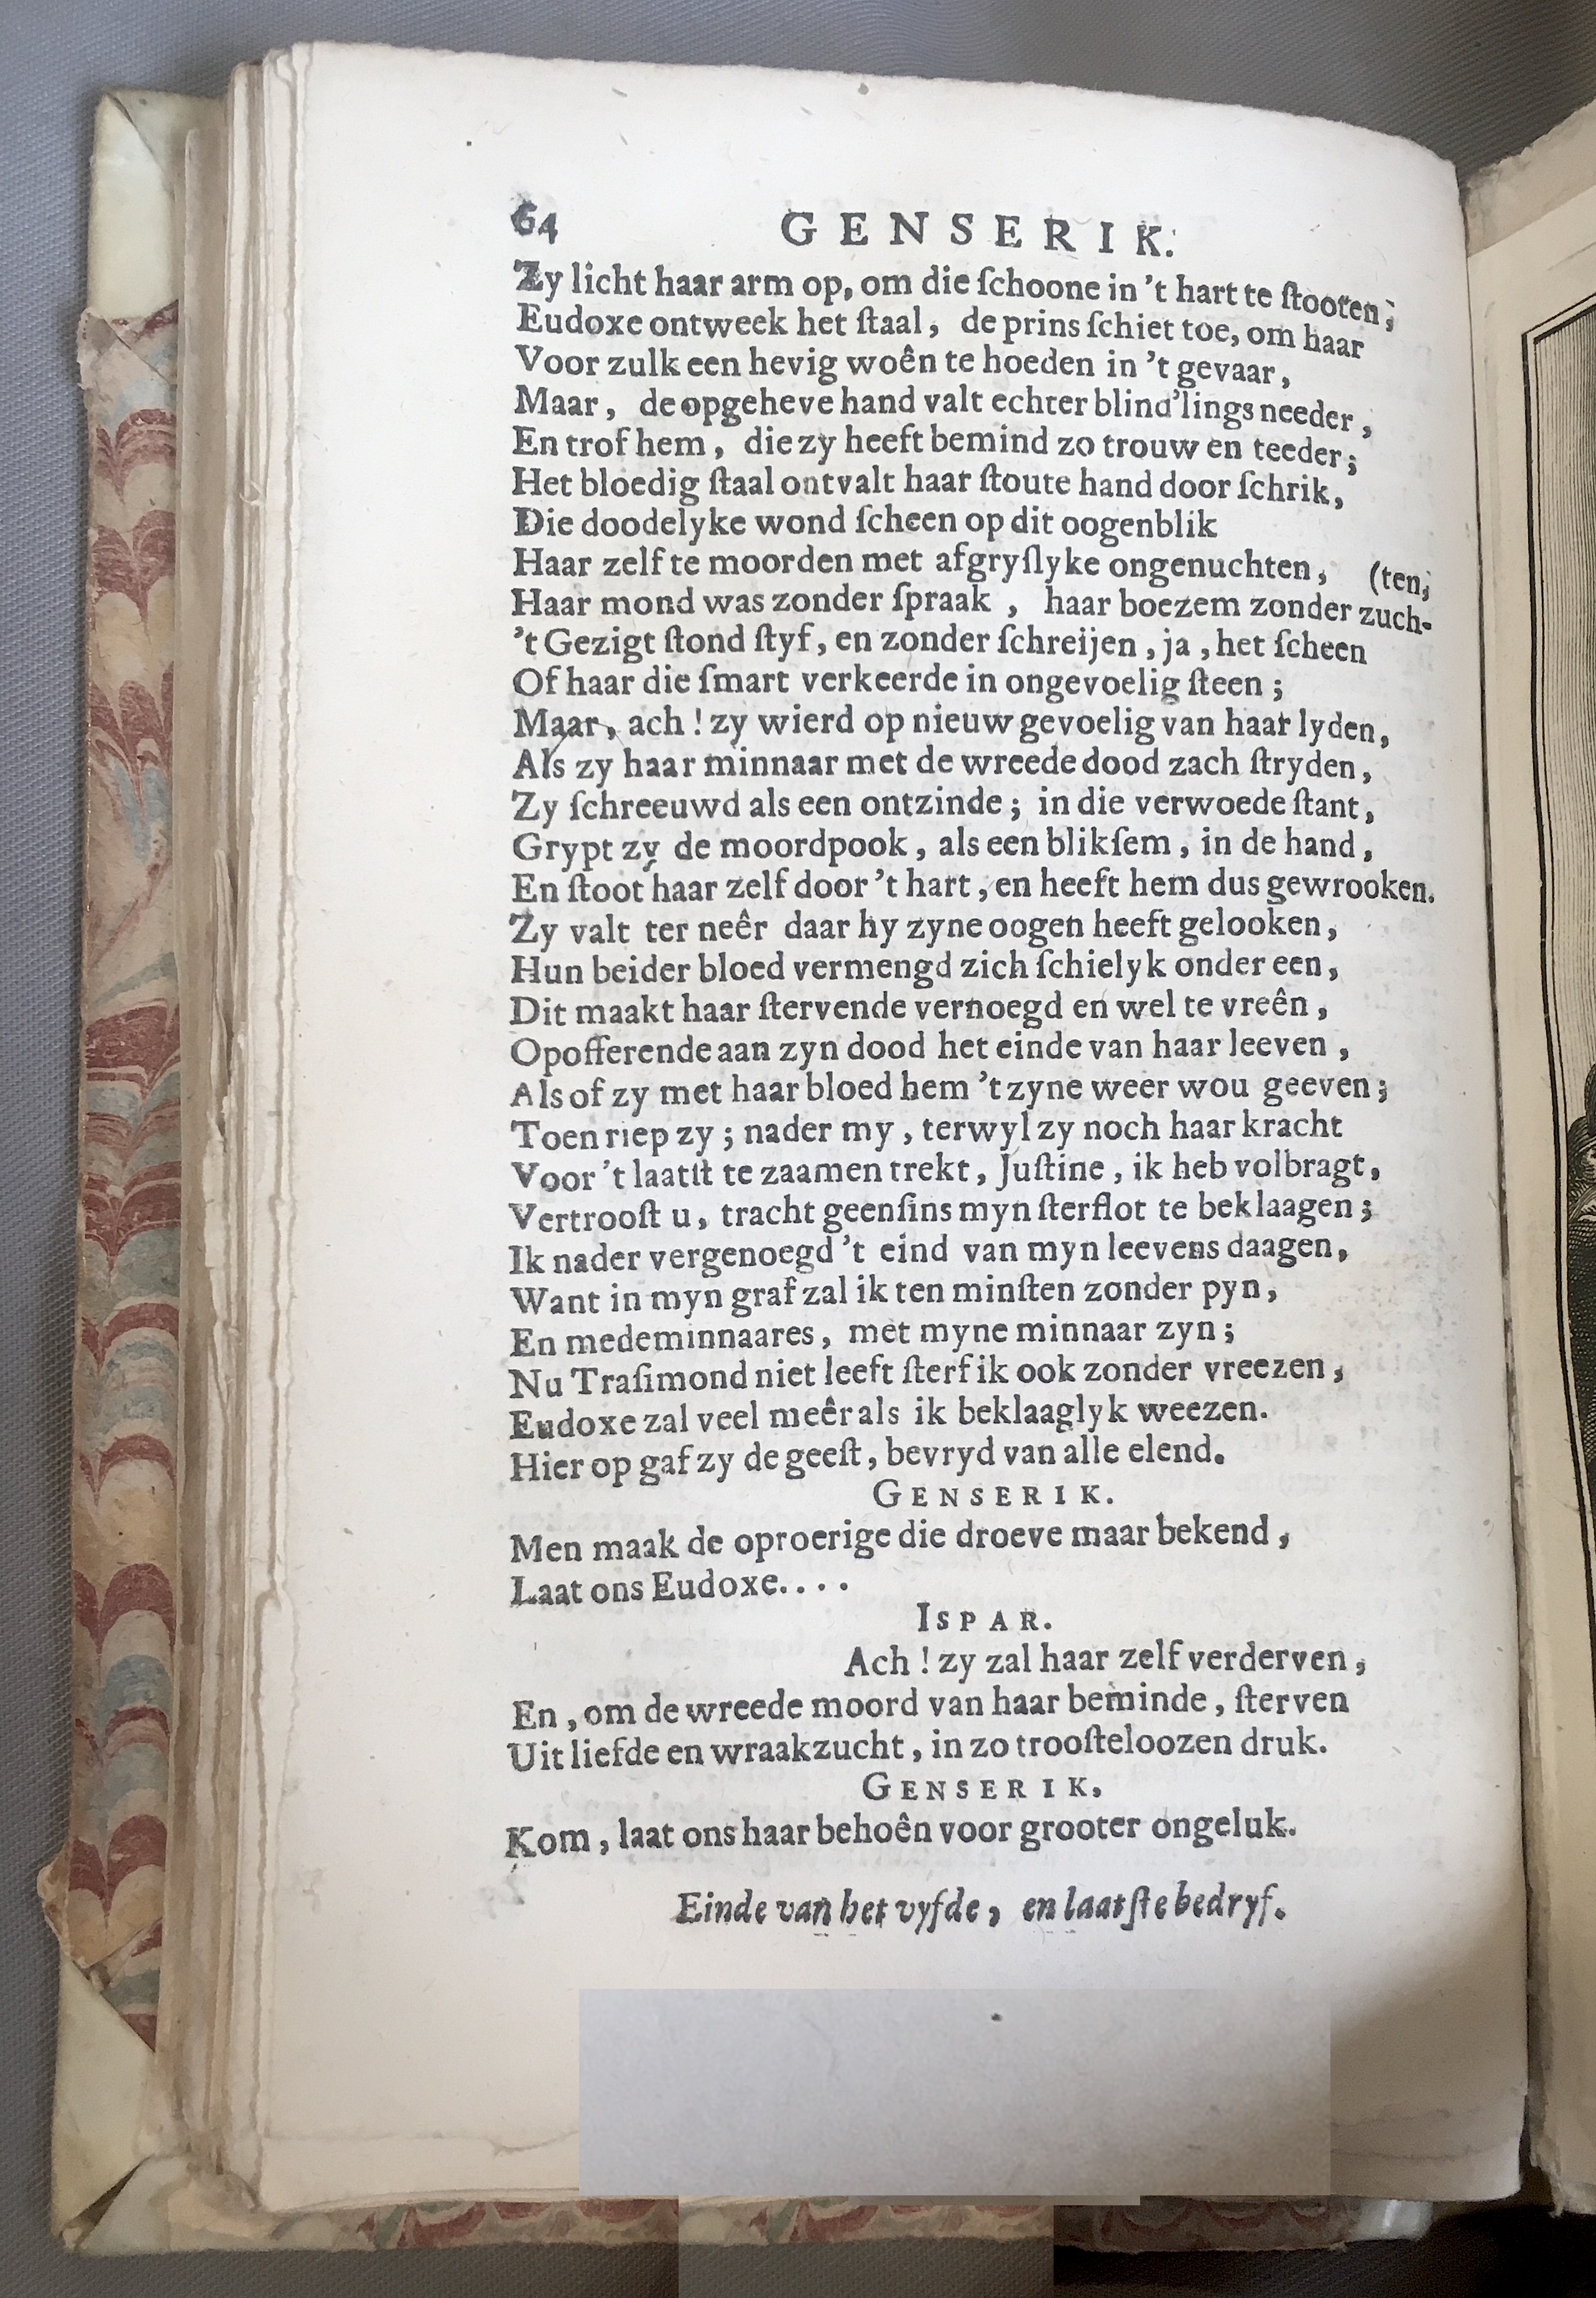 64 GENSERIK.
Zy licht haar arm op, om die ſchoone in 't hart te ſtooten;
Eudoxe ontweek het ſtaal, de prins ſchiet toe, om haar
Voor zulk een hevig woên te hoeden in 't gevaar,
Maar, de opgeheve hand valt echter blind'lings needer,
En trof hem, die zy heeft bemind zo trouw en teeder;
Het bloedig ſtaal ontvalt haar ſtoute hand door ſchrik,
Die doodelyke wond ſcheen op dit oogenblik
Haar zelf te moorden met afgryſlyke ongenuchten, (ten,
Haar mond was zonder ſpraak, haar boezem zonder zuch-
't Gezigt ſtond ſtyf, en zonder ſchreijen, ja, het ſcheen
Of haar die ſmart verkeerde in ongevoelig ſteen;
Maar, ach! zy wierd op nieuw gevoelig van haar lyden,
Als zy haar minnaar met de wreede dood zach ſtryden,
Zy ſchreeuwd als een ontzinde; in die verwoede ſtant,
Grypt zy de moordpook, als een blikſem, in de hand,
En ſtoot haar zelf door 't hart, en heeft hem dus gewrooken.
Zy valt ter neêr daar hy zyne oogen heeft gelooken,
Hun beider bloed vermengd zich ſchielyk onder een,
Dit maakt haar ſtervende vernoegd en wel te vreên,
Opofferende aan zyn dood het einde van haar leeven,
Als of zy met haar bloed hem 't zyne weer wou geeven;
Toen riep zy; nader my, terwyl zy noch haar kracht
Voor 't laatſt te zaamen trekt, Juſtine, ik heb volbragt,
Vertrooſt u, tracht geenſins myn ſterflot te beklaagen;
Ik nader vergenoegd 't eind van myn leevens daagen,
Want in myn graf zal ik ten minſten zonder pyn,
En medeminnaares, met myne minnaar zyn;
Nu Traſimond niet leeft ſterf ik ook zonder vreezen,
Eudoxe zal veel meêr als ik beklaaglyk weezen.
Hier op gaf zy de geeſt, bevryd van alle elend.
GENSERIK.
Men maak de oproerige die droeve maar bekend,
Laat ons Eudoxe....
ISPAR.
Ach! zy zal haar zelf verderven,
En, om de wreede moord van haar beminde, ſterven
Uit liefde en wraakzucht, in zo trooſteloozen druk.
GENSERIK,
Kom, laat ons haar behoên voor grooter ongeluk.
Einde van het vyfde, en laatſte bedryf.